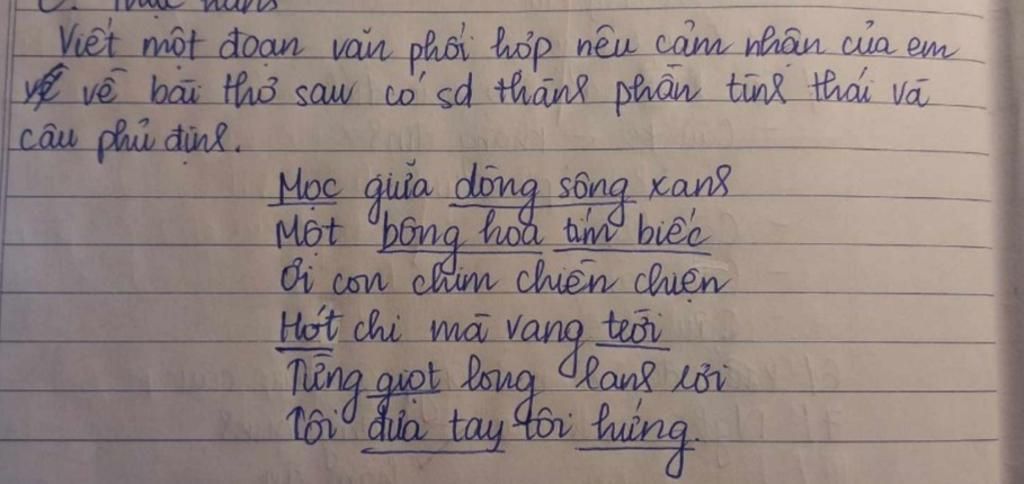 Viết một đoạn văn phối hợp nêu cảm nhận của em
về bài thơ sau có sd thành phần tình thái và
câu phủ định.
Mọc giữa dòng sông xanh
Một bông hoa tím biếc
Ơi con chim chiền chiện
Hót chi mà vang trời
Từng giọt long lanh rơi
Tôi đưa tay tôi hứng.